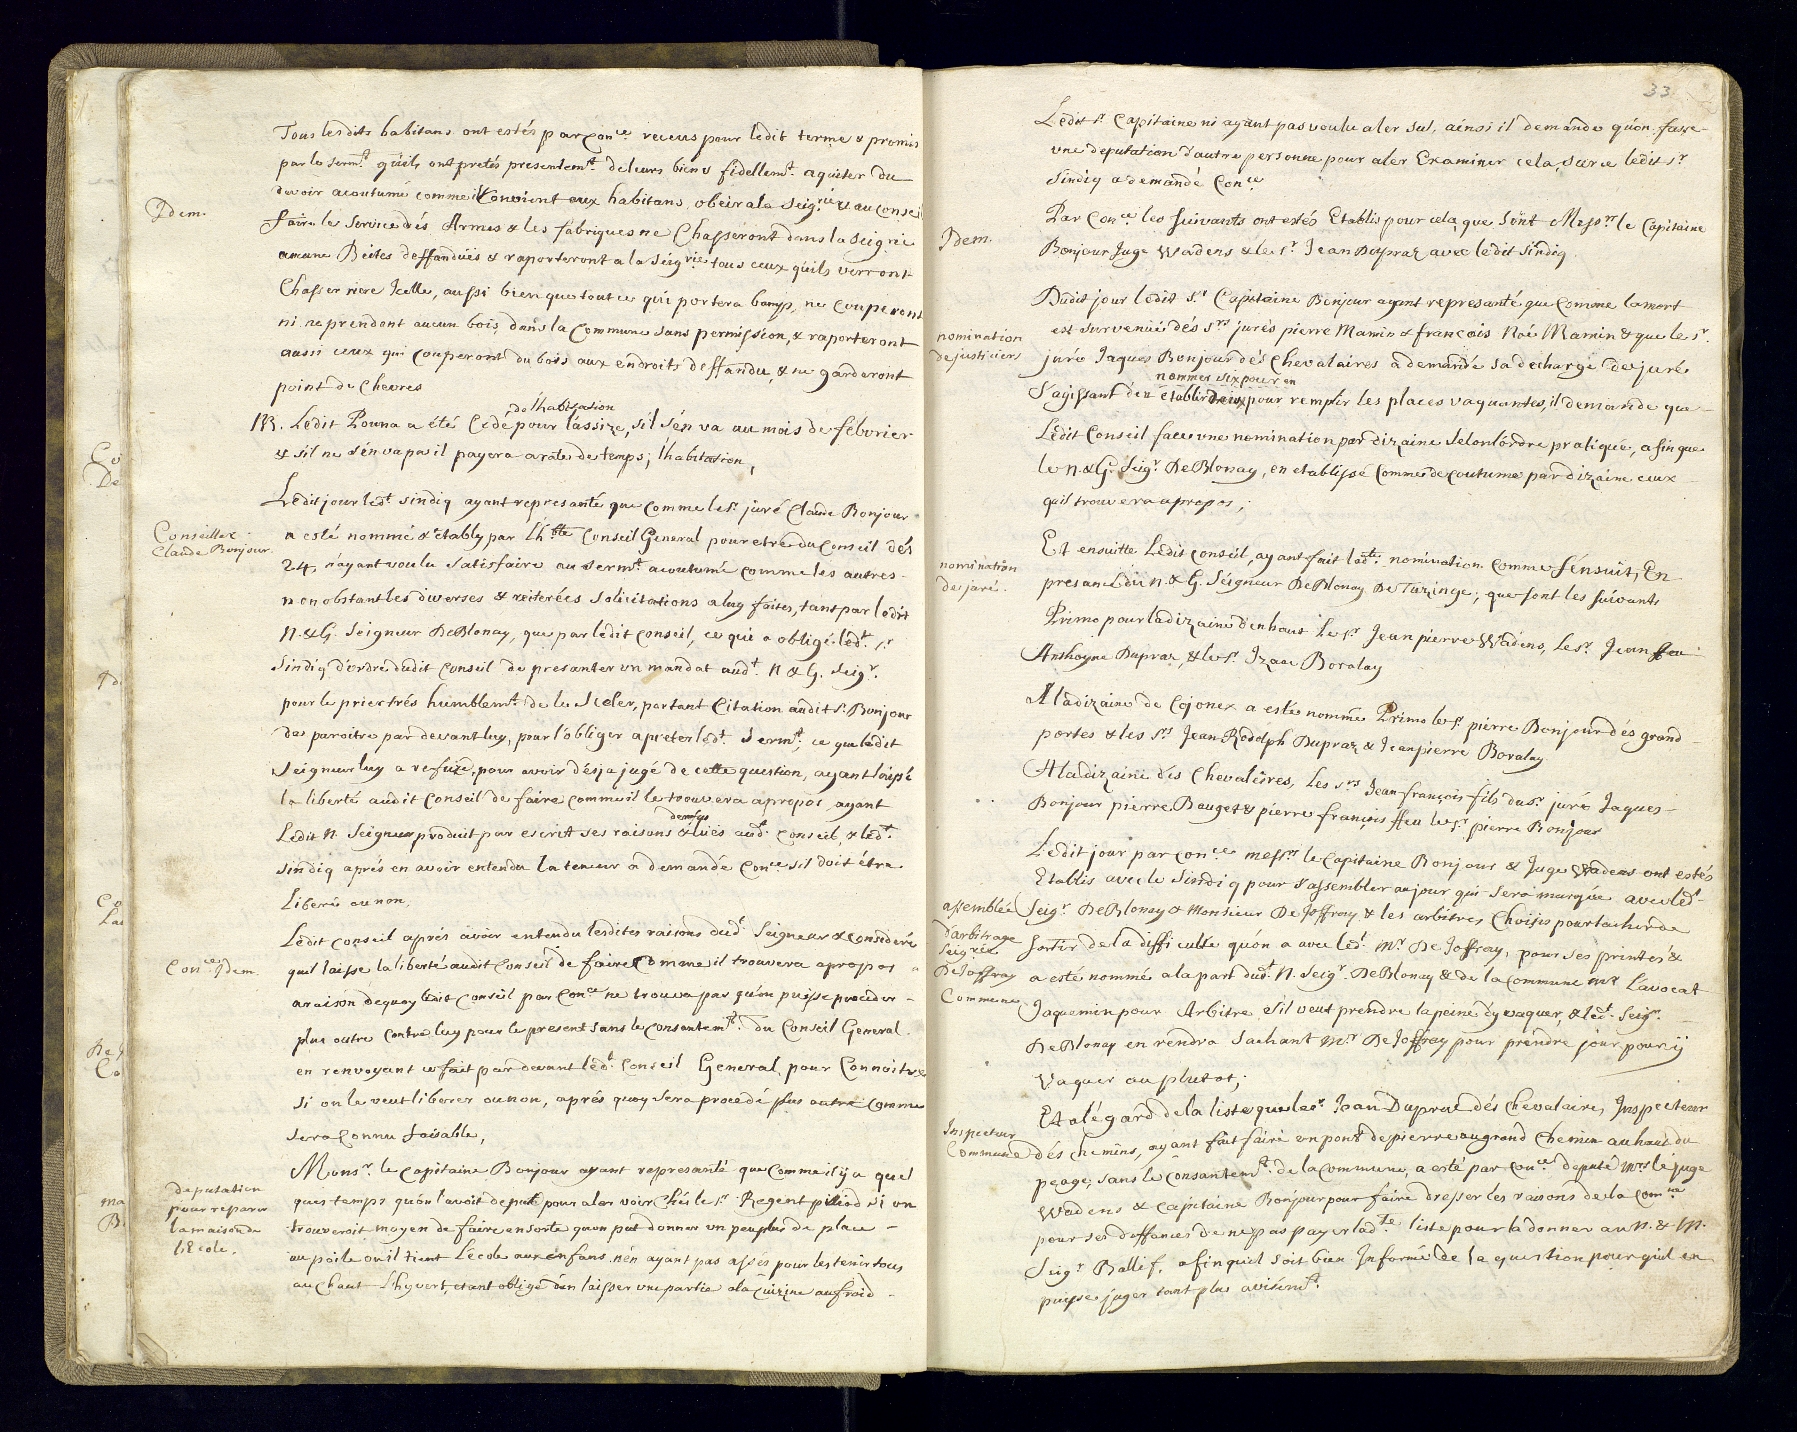 Tous lesdits habitans ont estés par con.ce receus pour ledit terme & promis
par le serm.t qu'ils ont pretés presentem.t de leurs biens fidellem.t aquiter du
devoir acoutumé comme il convient aux habitans, obeir a la Seig.rie & au conseil
Idem.
faire le service dés Armes & les fabriques ne Chasseront dans la Seig.rie
aucune Beites deffanduës & raporteront a la Seig.rie tous ceux qu'ils verront
Chasser riere Icelle, aussi bien que tout ce qui portera ne couperont
ni ne prendont aucun bois dans la Commune sans permission, & raporteront
aussi ceux qui couperont du bois aux endroits deffandu, & ne garderont
point de Chevres
de l'habitation
NB. Ledit Pouna a été Cedé pour l'assize, s'il s'en va au mois de febvrier
& s'il ne s'en va pas il payera a rate de temps, l'habitation,
Ledit jour led.t sindiq ayant represanté que comme le s.r juré Claude Bonjour
Conseiller
Claude Bonjour.
a esté nommé & etably par Lh.ble Conseil General pour etre du Conseil dés
24, n'ayant voulu satisfaire au serm.t acoutumé comme les autres
nonobstant les diverses & reiterées solicitations a luy faites, tant par ledit
N. & G. Seigneur DeBlonay, que par ledit conseil, ce qui a obligé led.t s.r
Sindiq d'ordre dudit Conseil de presanter un mandat aud.t N & G. Seig.r
pour le prier trés humblem.t de le Sceler, portant Citation audit s.r Bonjour
de paroitre par devant luy, pour l'obliger a preter led.t serm.t, ce que ledit
Seigneur luy a refuzé, pour avoir désja jugé de cette question, ayant laissé
la liberté audit Conseil de faire comme il le trouvera apropos, ayant
dessus
Ledit N. Seigneur produit par escrit ses raisons & luës aud.t Conseil, & led.t
sindiq aprés en avoir entendu la teneur a demandé Con.ce s'il doit étre
Liberé ou non.
Ledit Conseil aprés avoir entendu lesdites raisons dud.t Seigneur & consideré
Con.ce Idem
quil laisse la liberté audit Conseil de faire Comme il trouvera apropos
a raison dequoy ledit Conseil par Con.ce ne trouva pas qu'on puisse proceder
plus outre contre luy pour le present sans le consantem.t du Conseil General
en renvoyant ce fait par devant led.t Conseil General, pour Connoitre
si on le veut liberer ou non, aprés quoy sera procedé plus outre comme
sera Connu faisable,
Mons.r le Capitaine Bonjour ayant represanté que Comme il y a quel
deputation
pour reparer
la maison de
l'Ecole.
ques temps qu'on l'avoit deputé pour aler voir Chés le s.r Regent pilliod si on
trouveroit moyen de faire ensorte quon put donner un peu plus de place
au poile ou il tient L'ecole aux enfans n'en ayant pas assés pour les tenir tous
au Chaut L'hyvert, etant obligé d'en laisser une partie a la Cuizine au froid
33
Ledit s.r Capitaine ni ayant pas voulu aler sul, ainsi il demande qu'on fasse
une deputation d'autre personne pour aler Examiner cela, sur ce ledit s.r
Sindiq a demandé Con.ce
Idem.
Par Con.ce les suivants ont estés Etablis pour cela, que sont Mess.rs le Capitaine
Bonjour Juge Wadens & le s.r Jean Dupraz avec ledit sindiq
Dudit jour ledit s.r Capitaine Bonjour ayant represanté que comme la mort
nomination
de justiciers
est survenuë dés s.rs jurés pierre Mamin & françois Noé Mamin & que le s.r
juré Jaques Bonjour dés Chevalaires a demandé sa decharge de juré
nommer six pour en
S'agissant d'en etablir deux pour remplir les places vaquantes, il demande que
Ledit Conseil fasse une nomination par dizaine selon l'ordre pratiqué, afin que
le N. & G. Seig.r DeBlonay, en etablisse comme de coutume par dizaine ceux
quil trouvera apropos;
nomination
de juré.
Et ensuitte Ledit Conseil, ayant fait lad.te nomination comme s'ensuit, En
presance du N. & G. Seigneur DeBlonay De Tazinge, que sont les suivants
Primo pour la dizaine d'enhaut Le s.r Jean pierre Wadens, Le s.r Jean ffeu
Anthoyne Dupraz, & le s.r Izaac Boralay
A la dizaine de Cojonex a esté nommé Primo le s.r pierre Bonjour dés grand
portes & les s.rs Jean Rodolph Dupraz & Jean pierre Boralay
A la dizaine dés Chevaleires, Les s.rs Jean françois fils du s.r juré Jaques
Bonjour pierre Bauget & pierre françois ffeu le s.r pierre Bonjour
Ledit jour par Con.ce mess.rs le Capitaine Bonjour & Juge Wadens ont estés
Etablis avec le Sindiq pour s'assembler au jour qui sera marquée avec led.t
assemblée
d'arbitrage
Seig.rie
DeJoffray
Commune
Seig.r DeBlonay & Monsieur DeJoffray & les arbitres Choisis pour tacher de
sortir de la difficulte qu'on a avec led.t M.r DeJoffray, pour ses printés &
a esté nommé a la part dud.t N. Seig.r DeBlonay & de la Commune M.r L'avocat
Jaquemin pour Arbitre s'il veut prendre la peine d'y vaquer, & led.t Seig.r
DeBlonay en rendra Sachant M.r DeJoffray pour prendre jour pour ij
vaquer au plutot;
Inspecteur
Commune
Et a l'égard de la liste que le s.r Jean Dupraz dés Chevalaires, Inspecteur
dés Chemins, ayant fait faire un pont de pierre au grand Chemin au haut du
peage, sans le consantem.t de la Commune, a esté par Con.ce deputé M.rs le juge
Wadens & Capitaine Bonjour pour faire dresser les raisons de la Com.ne
pour ses deffances de ne pas payer lad.te liste pour la donner au N. & M.
Seig.r Ballif, afin quil soit bien Informé de la question pour quil en
puisse juger tant plus avisém.t